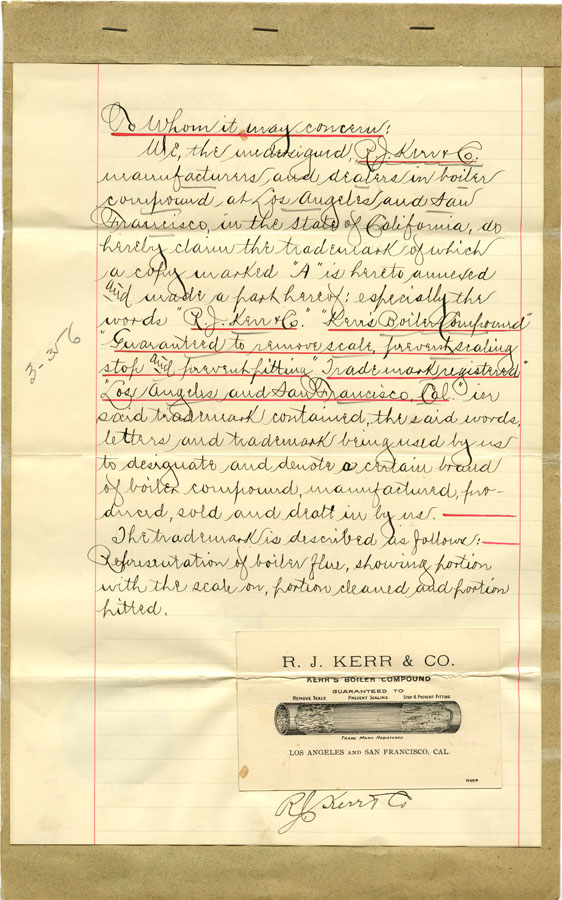 To Whom it may concern:
We, the undersigned, R. J. Kerr & Co.
manufacturers and dealers in boiler
compound at Los Angeles and San
Francisco, in the State of California, do
hereby claim the trademark of which
a copy marked "A" is hereto annexed
and made a part hereof: especially the
words "R. J. Kerr & Co." "Kerr's Boiler Compound"
"Guaranteed to remove scale, prevent scaling
stop and prevent pitting" "Trademark registered"
"Los Angeles and San Francisco, Cal." in
said trademark contained, the said words,
letters and trademark being used by us
to designate and denote a certain brand
of boiler compound, manufactured, pro-
duced, sold and dealt in by us.
The trademark is described as follows:
Representation of boiler flue, showing portion
with the scale on, portion cleaned and portion
pitted.
3-356
R. J. KERR & CO.
KERR'S BOILER COMPOUND
GUARANTEED TO
REMOVE SCALE PREVENT SCALING STOP & PREVENT PITTING
TRADE MARK REGISTERED
LOS ANGELES AND SAN FRANCISCO, CAL.
OVER
R J Kerr & Co